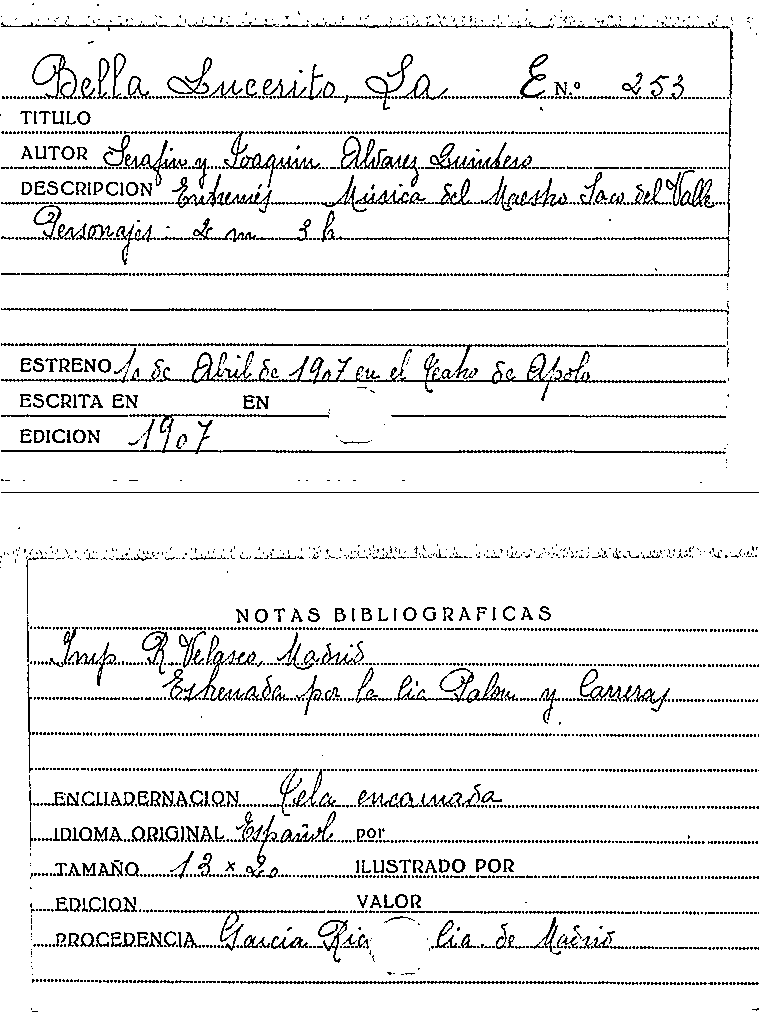 Bella Lucerito, La E N.º 253
TITULO
AUTOR Serafin y Joaquin Alvarez Quintero
DESCRIPCION Entremés Música del Maestro Saco del Valle
Personajes: 2 m 3 h.
ESTRENO 10 de Abril de 1907 en el Teatro de Apolo
ESCRITA EN EN
EDICION 1907
NOTAS BIBLIOGRAFICAS
Imp R. Velasco, Madrid
Estrenada por la cia Palou y Carreras
ENCUADERNACION Tela encarnada
IDIOMA ORIGINAL Español por
TAMAÑO 13 x 20 ILUSTRADO POR
EDICION VALOR
PROCEDENCIA Garcia Rico cia. de Madrid